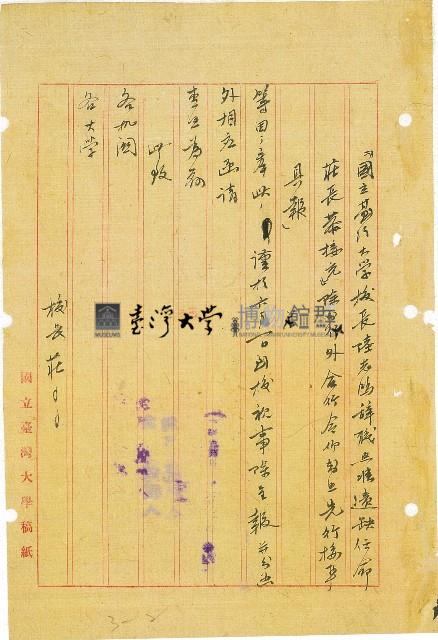 「國立臺灣大學校長陸志鴻辭職照准遺缺任命
莊長恭接充除呈外合行令仰知照先行接事
具報」
等因；奉此，謹於六月一日到校視事除呈報並分函
外相應函請
查照為荷
此致
各机関
各大学
校長莊〇〇
國立臺灣大學稿紙
臺灣大學
博物館群
MUSEUMS
NATIONAL TAIWAN UNIVERSITY MUSEUMS
3-2